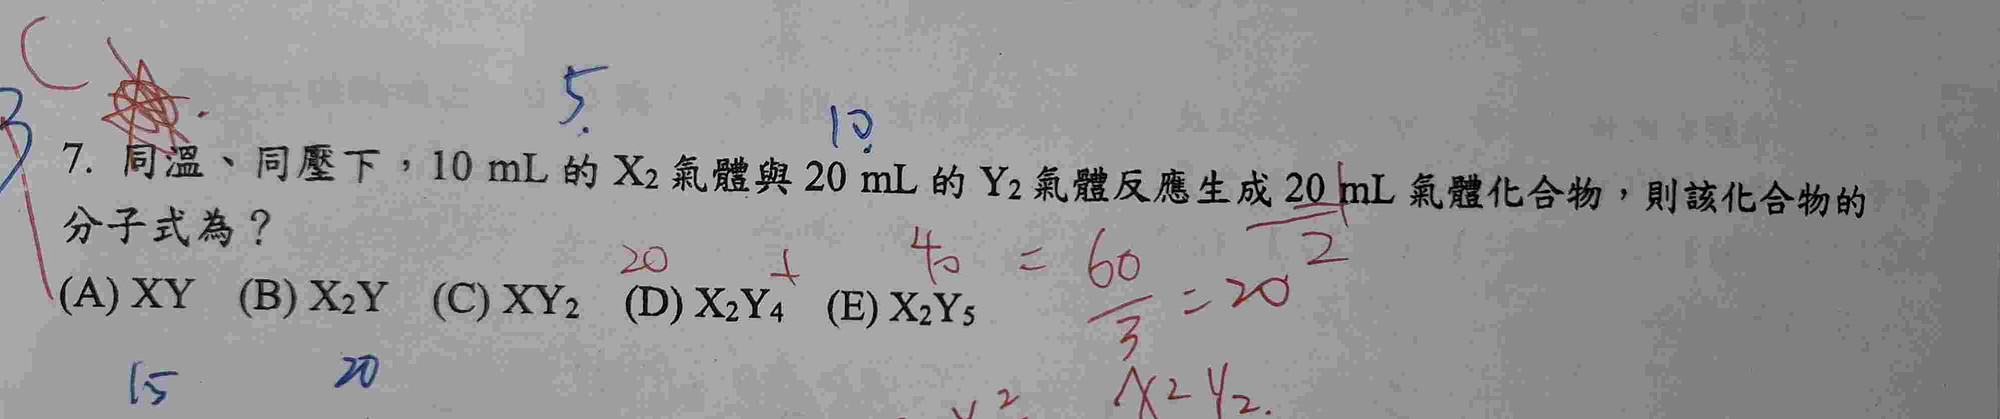 C
5.
3
10.
7. 同溫、同壓下，10 mL 的 X₂ 氣體與 20 mL 的 Y₂ 氣體反應生成 20 mL 氣體化合物，則該化合物的
分子式為？
2
20 + 40 = 60/3 = 20
(A) XY (B) X₂Y (C) XY₂ (D) X₂Y₄ (E) X₂Y₅
15 20
X2Y2.